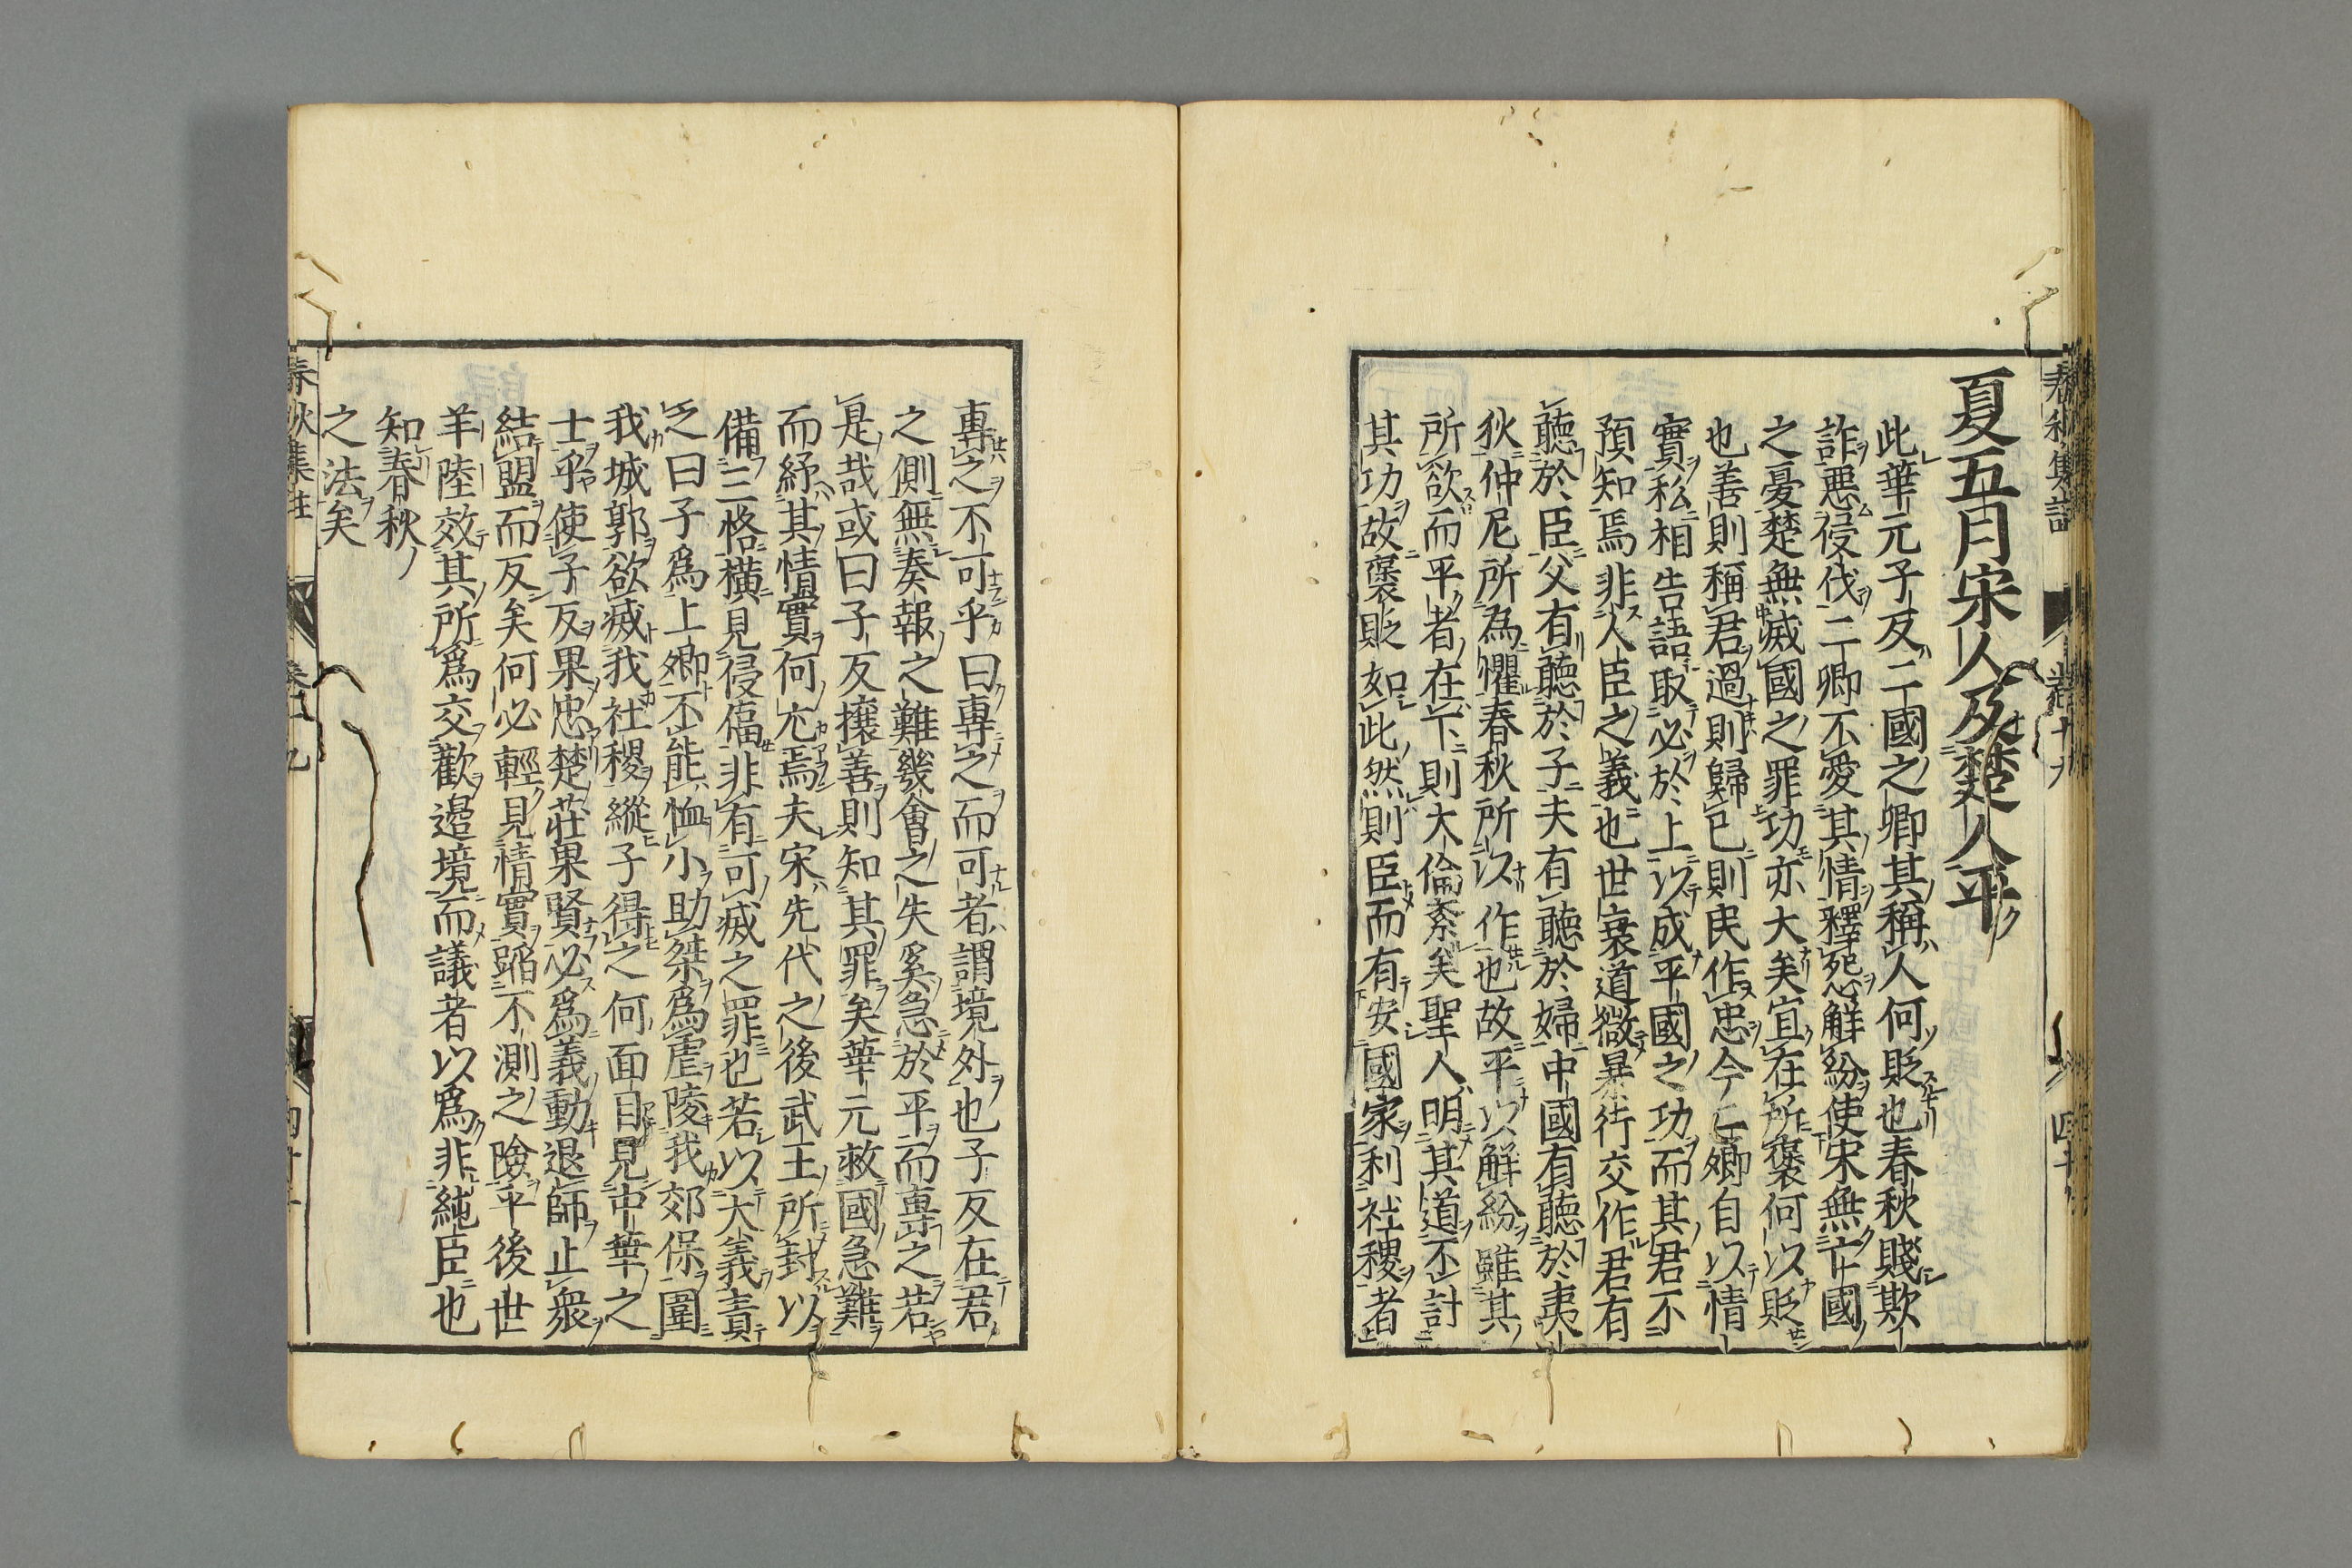 夏五月宋人及楚人平
此華元子反二國之卿其稱人何貶也春秋賤欺
詐惡侵伐二卿不愛其情釋怨解紛使宋無亡國
之憂楚無滅國之罪功亦大矣宜在所褒何以貶
也善則稱君過則歸已則民作忠今二卿自以情
實私相告語取必於上以成平國之功而其君不
預知焉非人臣之義也世衰道微暴行交作君有
聽於臣父有聽於子夫有聽於婦中國有聽於夷
狄仲尼所為懼春秋所以作也故平以解紛雖其
所欲而平者在下則大倫紊矣聖人明其道不計
其功故褒貶如此然則臣而有安國家利社稷者
專之不可乎曰專之而可者謂境外也子反在君
之側無奏報之難幾會之失奚急於平而專之若
是哉或曰子反攘善則知其罪矣華元救國急難
而紓其情實何尤焉夫宋先代之後武王所封以
備三恪橫見侵偪非有可滅之罪也若以大義責
之曰子爲上卿不能恤小助桀爲虐陵我郊保圍
我城郭欲滅我社稷縱子得之何面目見中華之
士乎使子反果忠楚莊果賢必爲義動退師止衆
結盟而反矣何必輕見情實蹈不測之險乎後世
羊陸效其所爲交歡邊境而議者以爲非純臣也
知春秋
之法矣
春秋集註 卷十九